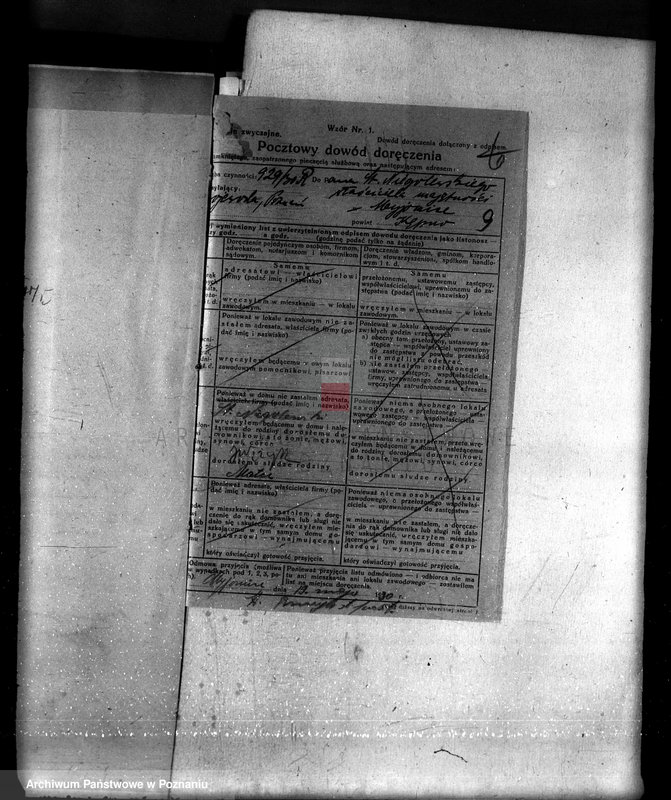 zwyczajne.
Wzór Nr. 1.
Dowód doręczenia dołączony z odpisem
Pocztowy dowód doręczenia
zaopatrzonego pieczęcią służbową oraz następującym adresem:
czynności: 929/30 R Do Pana St. Niegolewskiego
właściciela majętności
w
powiat Kępno
9
wymieniony list z uwierzytelnionym odpisem dowodu doręczenia jako listonosz
godz. a godz. (godzinę podać tylko na żądanie)
Doręczenie pojedyńczym osobom, firmom,
adwokatom, notarjuszom i komornikom
sądowym.
Doręczenie władzom, gminom, korpora-
cjom, stowarzyszeniom, spółkom handlo-
wym i t. d.
Samemu
adresatowi — właścicielowi
firmy (podać imię i nazwisko)
wręczyłem w mieszkaniu — w lokalu
zawodowym.
Samemu
przełożonemu, ustawowemu zastępcy,
współwłaścicielowi, uprawnionemu do za-
stępstwa (podać imię i nazwisko)
wręczyłem w mieszkaniu — w lokalu
zawodowym.
Ponieważ w lokalu zawodowym nie za-
stałem adresata, właściciela firmy (po-
dać imię i nazwisko)
wręczyłem będącemu w owym lokalu
zawodowym pomocnikowi, pisarzowi
Ponieważ w lokalu zawodowym w czasie
zwykłych godzin urzędowych:
a) obecny tam przełożony, ustawowy za-
stępca — współwłaściciel uprawniony
do zastępstwa z powodu przeszkód
nie mógł listu odebrać,
b) nie zastałem przełożonego —
ustawow. zastępcy, współwłaściciela
firmy, uprawnionego do zastępstwa —
wręczyłem zatrudnionemu u adresata
Ponieważ w domu nie zastałem adresata,
właściciela firmy (podać imię i nazwisko)
St. Niegolewski
wręczyłem będącemu w domu i nale-
żącemu do rodziny dorosłemu do-
mownikowi, a to żonie, mężowi,
synowi, córce
dorosłemu słudze rodziny
Ponieważ niema osobnego lokalu
zawodowego, a przełożonego — usta-
wowego zastępcy — współwłaściciela
uprawnionego do zastępstwa —
w mieszkaniu nie zastałem, przeto wrę-
czyłem będącemu w domu i należącemu
do rodziny dorosłemu domownikowi,
a to żonie, mężowi, synowi, córce
dorosłemu słudze rodziny
Ponieważ adresata, właściciela firmy (po-
dać imię i nazwisko)
w mieszkaniu nie zastałem, a dorę-
czenie do rąk domownika lub sługi nie
dało się uskutecznić, wręczyłem mie-
szkającemu w tym samym domu go-
spodarzowi — wynajmującemu
który oświadczył gotowość przyjęcia.
Ponieważ niema osobnego lokalu
zawodowego, a przełożonego współwła-
ściciela — uprawnionego do zastępstwa —
w mieszkaniu nie zastałem, a doręcze-
nie do rąk domownika lub sługi nie dało
się uskutecznić, wręczyłem mieszka-
jącemu w tym samym domu gospo-
darzowi — wynajmującemu
który oświadczył gotowość przyjęcia.
Odmowa przyjęcia (możliwa
w wypadkach pod 1, 2, 3, po-
Ponieważ przyjęcia listu odmówiono — i odbiorca nie ma
tu ani mieszkania ani lokalu zawodowego — zostawiłem
list na miejscu doręczenia.
dnia 19 maja 1930 r.
dalszy na odwrotnej str.
Archiwum Państwowe w Poznaniu